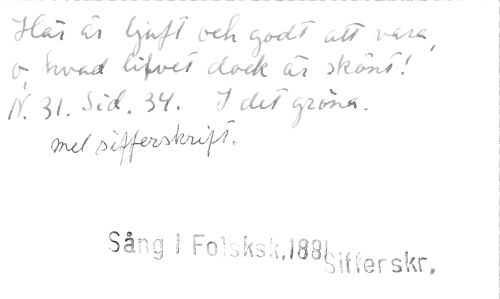 Här är ljuft och godt att vara,
o, hvad lifvet dock är skönt!
N. 31. Sid. 34. I det gröna.
mel sifferskrift.
Sång I Folsksk,1881
Sifferskr.